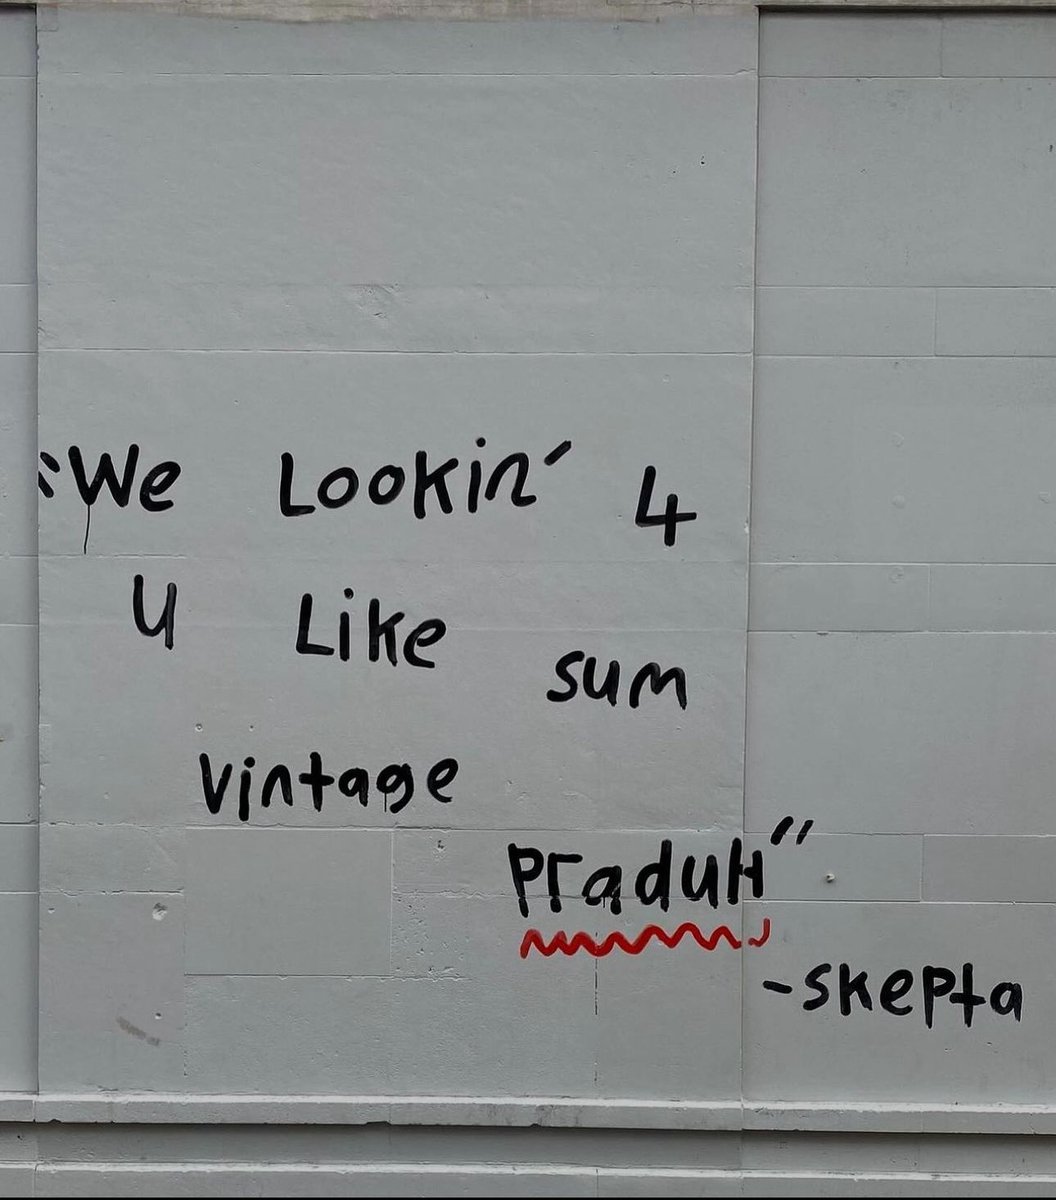 "We Lookin' 4
U Like sum
vintage
PraduH"
-skepta